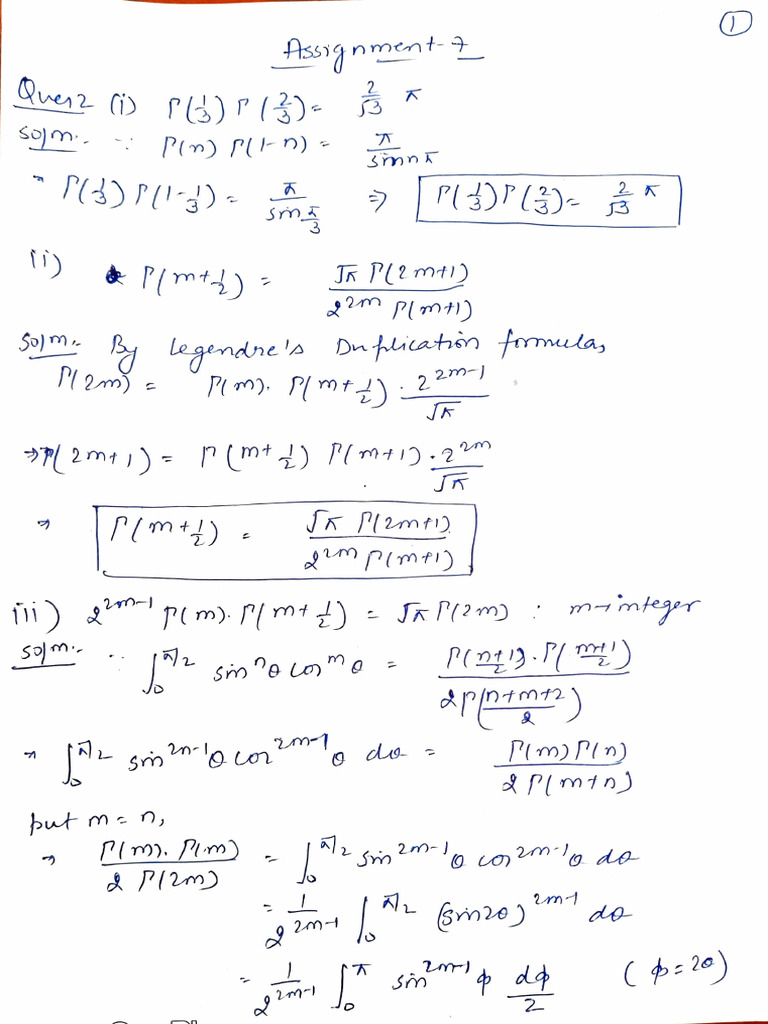 ①
Assignment-7
Ques 2 (i) Γ(1/3) Γ(2/3) = 2/√3 π
Soln:- ∵ Γ(n) Γ(1-n) = π/sin nπ
⇒ Γ(1/3) Γ(1-1/3) = π/sin π/3 ⇒ Γ(1/3) Γ(2/3) = 2/√3 π
ii) Γ(m+1/2) = √π Γ(2m+1) / 2^{2m} Γ(m+1)
Soln:- By Legendre's Duplication formulas,
Γ(2m) = Γ(m). Γ(m+1/2) . 2^{2m-1}/√π
⇒ Γ(2m+1) = Γ(m+1/2) Γ(m+1) . 2^{2m}/√π
⇒ Γ(m+1/2) = √π Γ(2m+1) / 2^{2m} Γ(m+1)
iii) 2^{2m-1} Γ(m). Γ(m+1/2) = √π Γ(2m) : m→integer
Soln:- ∵ ∫_0^{π/2} sin^n θ cos^m θ = Γ(n+1/2). Γ(m+1/2) / 2Γ(n+m+2/2)
⇒ ∫_0^{π/2} sin^{2n-1} θ cos^{2m-1} θ dθ = Γ(m) Γ(n) / 2 Γ(m+n)
put m = n,
⇒ Γ(m). Γ(m) / 2 Γ(2m) = ∫_0^{π/2} sin^{2m-1} θ cos^{2m-1} θ dθ
= 1/2^{2m-1} ∫_0^{π/2} (sin2θ)^{2m-1} dθ
= 1/2^{2m-1} ∫_0^{π} sin^{2m-1} ϕ dϕ/2 (ϕ = 2θ)